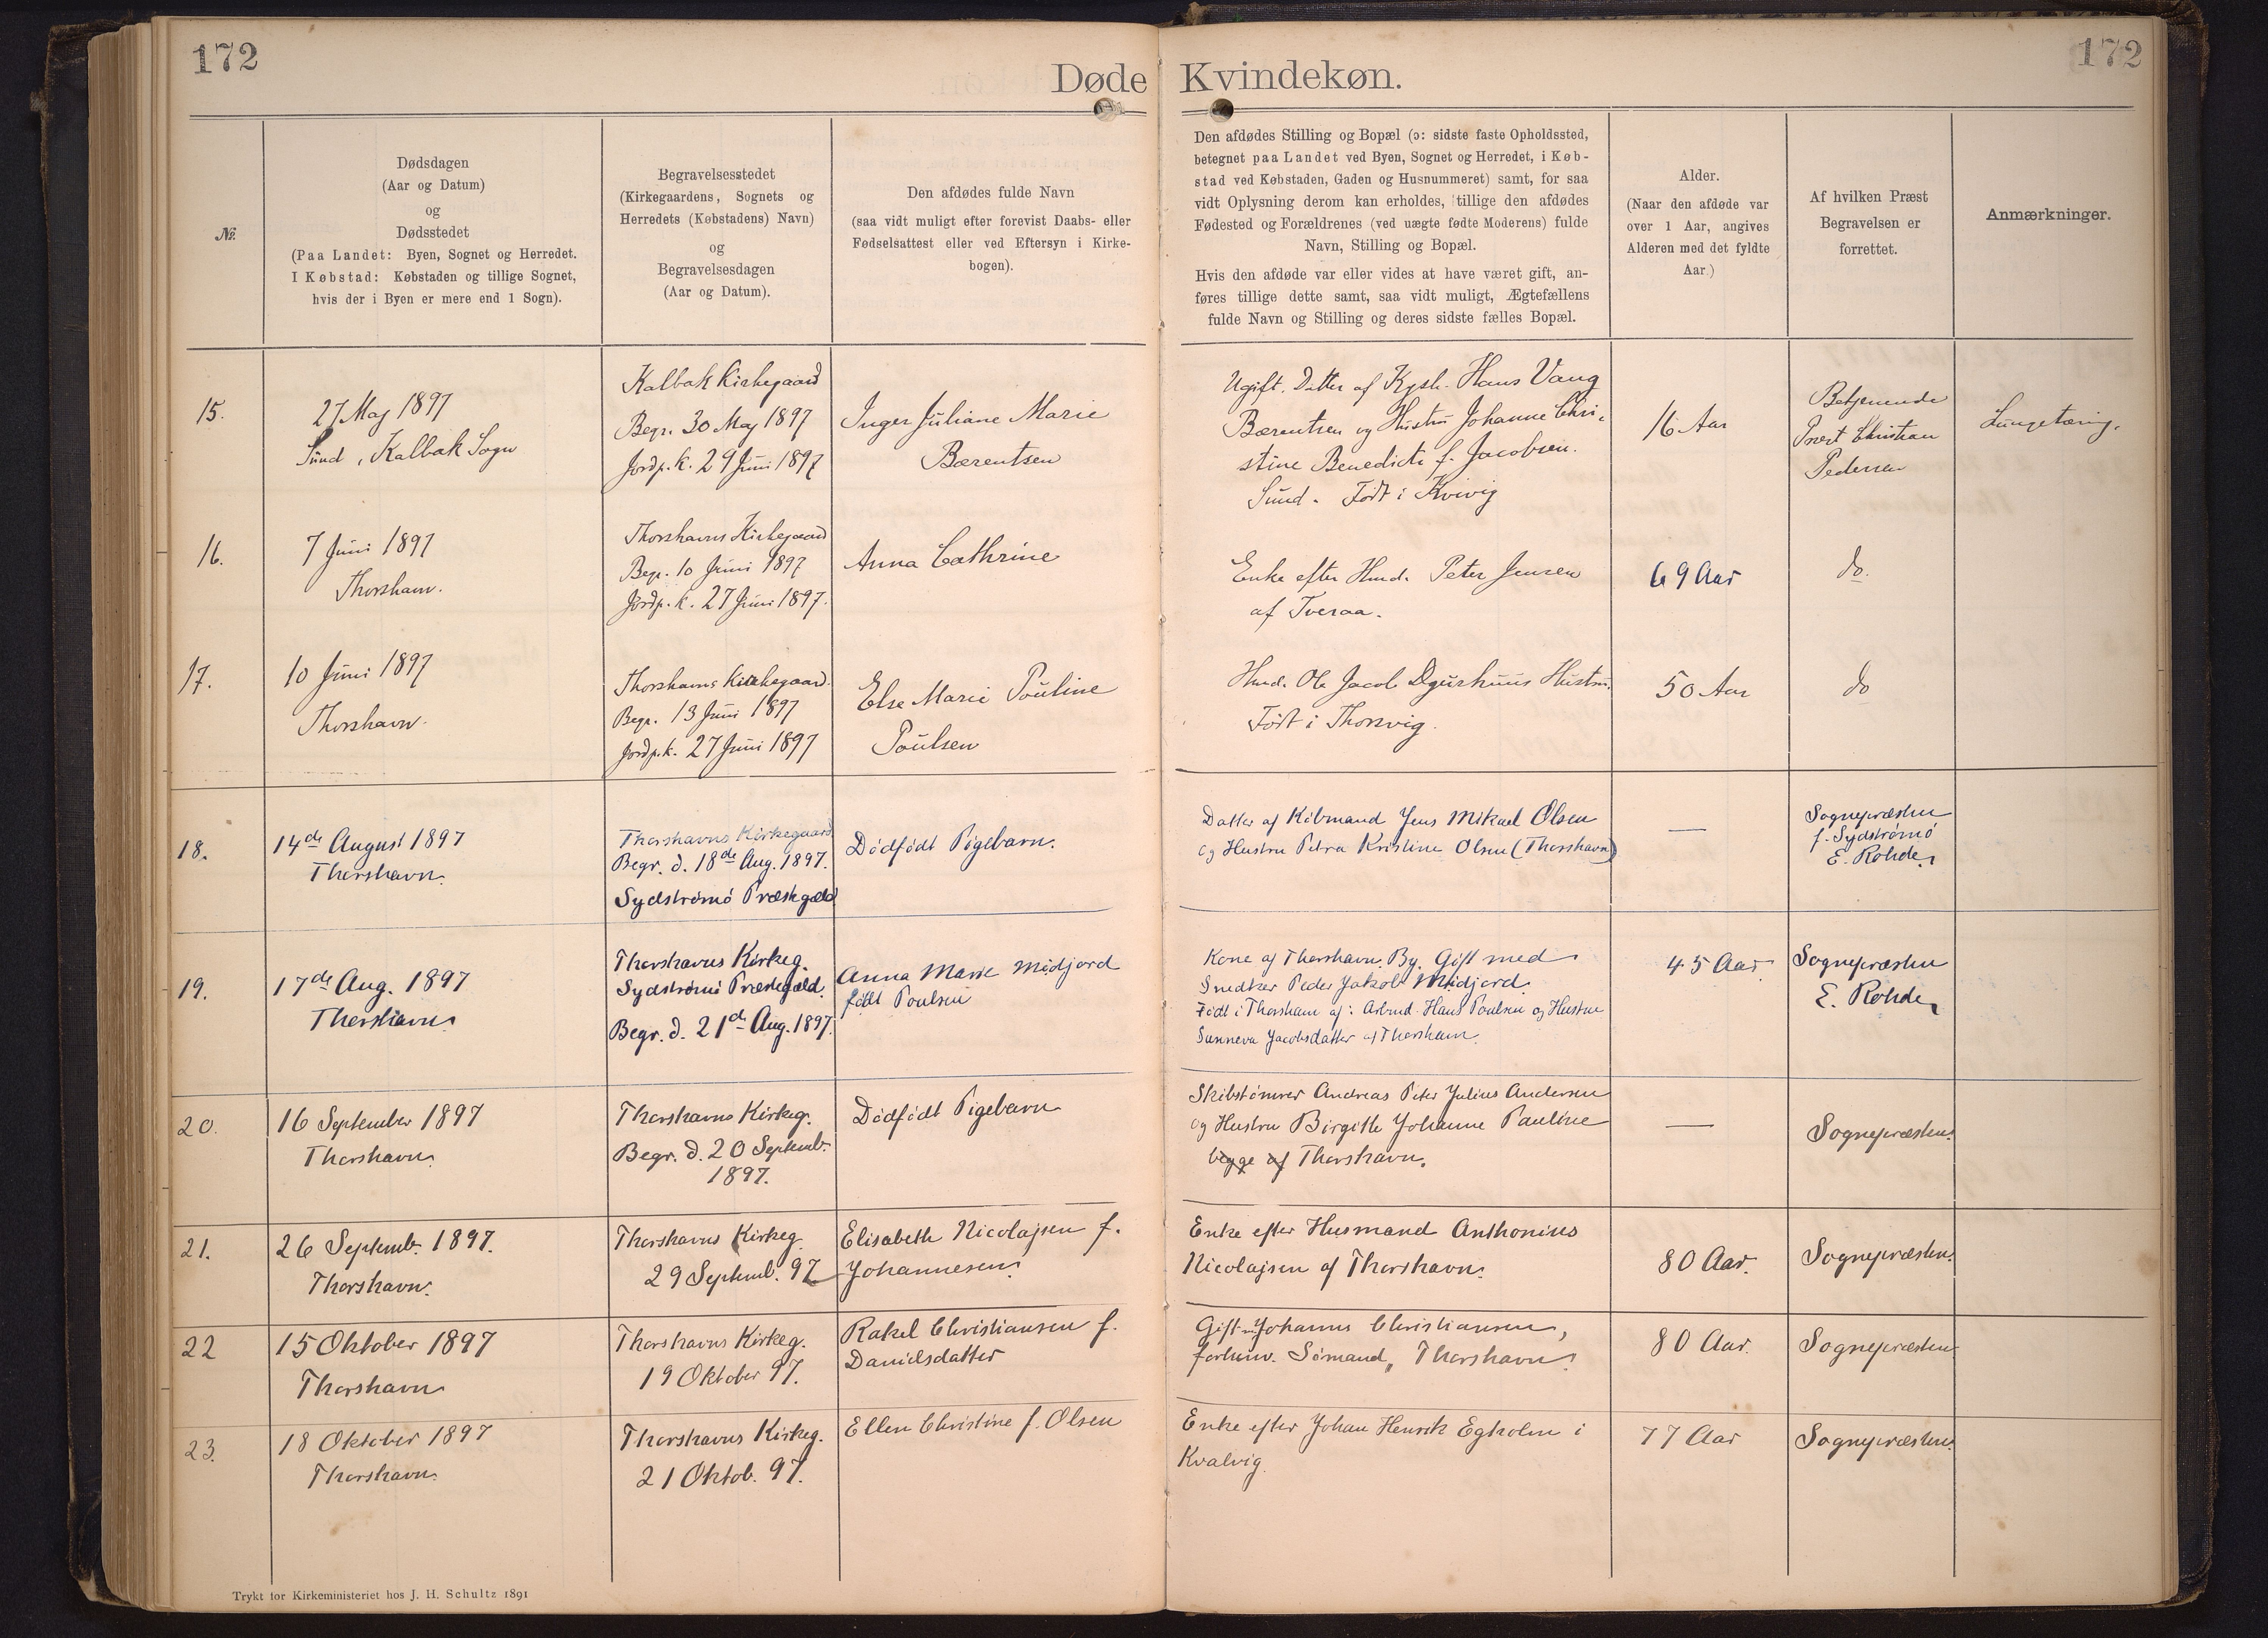 172
172
Døde Kvindekøn.
№.
Dødsdagen
(Aar og Datum)
og
Dødsstedet
(Paa Landet: Byen, Sognet og Herredet.
I Købstad: Købstaden og tillige Sognet,
hvis der i Byen er mere end 1 Sogn).
Begravelsesstedet
(Kirkegaardens, Sognets og
Herredets (Købstadens) Navn)
og
Begravelsesdagen
(Aar og Datum).
Den afdødes fulde Navn
(saa vidt muligt efter forevist Daabs- eller
Fødselsattest eller ved Eftersyn i Kirke-
bogen).
Den afdødes Stilling og Bopæl (ɔ: sidste faste Opholdssted,
betegnet paa Landet ved Byen, Sognet og Herredet, i Køb-
stad ved Købstaden, Gaden og Husnummeret) samt, for saa
vidt Oplysning derom kan erholdes, tillige den afdødes
Fødested og Forældrenes (ved uægte fødte Moderens) fulde
Navn, Stilling og Bopæl.
Hvis den afdøde var eller vides at have været gift, an-
føres tillige dette samt, saa vidt muligt, Ægtefællens
fulde Navn og Stilling og deres sidste fælles Bopæl.
Alder.
(Naar den afdøde var
over 1 Aar, angives
Alderen med det fyldte
Aar.)
Af hvilken Præst
Begravelsen er
forrettet.
Anmærkninger.
15.
27 Maj 1897
Sund, Kalbak Sogn
Kalbak Kirkegaard
Begr. 30 Maj 1897
Jordp. k. 29 Juni 1897
Inger Juliane Marie
Bærentsen
Ugift. Datter af Kgsb. Hans Vang
Bærentsen og Hustru Johanne Chri-
stine Benedicte f. Jacobsen.
Sund. Født i Kvivig
16 Aar
Betjenende
Præst Christian
Pedersen
Lungetæring.
16.
7 Juni 1897
Thorshavn.
Thorshavns Kirkegaard
Begr. 10 Juni 1897
Jordp. k. 27 Juni 1897.
Anna Cathrine
Enke efter Husm. Peter Jensen
af Tveraa.
69 Aar
do.
17.
10 Juni 1897
Thorshavn.
Thorshavns Kirkegaard.
Begr. 13 Juni 1897
Jordp. k. 27 Juni 1897
Else Marie Pouline
Poulsen
Husm. Ole Jacob Dgurhuus Hustru.
Født i Thorsvig.
50 Aar
do
18.
14de August 1897
Thorshavn.
Thorshavns Kirkegaard
Begr. d. 18de Aug. 1897.
Sydstrømø Præstegæld
Dødfødt Pigebarn.
Datter af Købmand Jens Mikael Olsen
og Hustru Petra Kristine Olsen (Thorshavn)
—
Sognepræsten
f. Sydstrømø
E. Rohde.
19.
17de Aug. 1897
Thorshavn.
Thorshavns Kirkeg.
Sydstrømø Præstegæld.
Begr. d. 21de Aug. 1897.
Anna Marie Midjord
født Poulsen
Kone af Thorshavn. By. Gift med
Snedker Peder Jakob Midjord.
Født i Thorshavn af: Arbmd. Hans Poulsen og Hustru
Sunneva Jacobsdatter af Thorshavn.
45 Aar
Sognepræsten
E. Rohde
20.
16 September 1897
Thorshavn.
Thorshavns Kirkeg.
Begr. d. 20 Septemb.
1897.
Dødfødt Pigebarn
Skibstømrer Andreas Peter Julius Andersen
og Hustru Birgitte Johanne Pauline
begge af Thorshavn.
—
Sognepræsten.
21.
26 Septemb. 1897.
Thorshavn.
Thorshavns Kirkeg.
29 Septemb. 97
Elisabeth Nicolajsen f.
Johannesen.
Enke efter Husmand Anthonius
Nicolajsen af Thorshavn.
80 Aar.
Sognepræsten.
22
15 Oktober 1897
Thorshavn
Thorshavns Kirkeg.
19 Oktober 97.
Rakel Christiansen f.
Danielsdatter
Gift m. Johannes Christiansen,
forhenv. Sømand, Thorshavn.
80 Aar.
Sognepræsten
23.
18 Oktober 1897
Thorshavn.
Thorshavns Kirkeg.
21 Oktob. 97.
Ellen Christine f. Olsen
Enke efter Johan Henrik Egholm i
Kvalvig.
77 Aar
Sognepræsten.
Trykt for Kirkeministeriet hos J. H. Schultz 1891